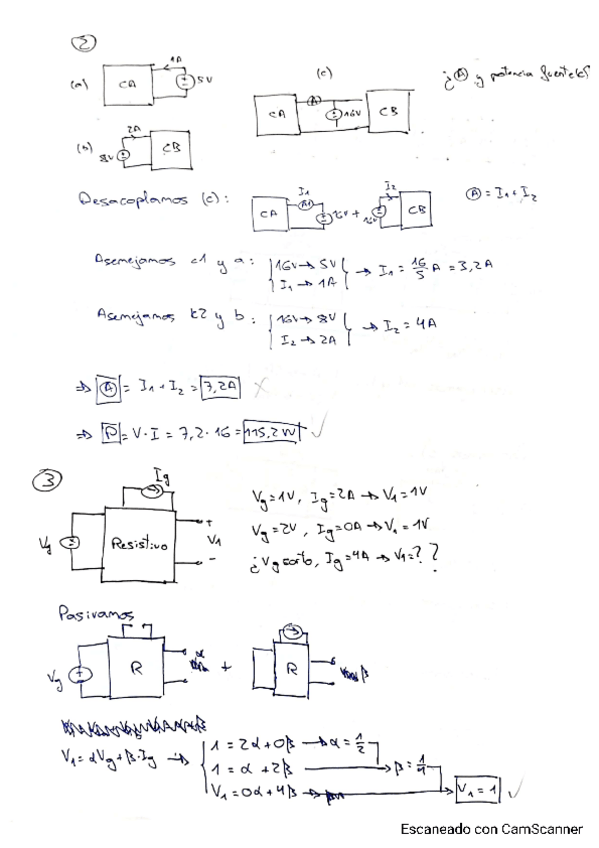 ②
(a) CA 1A 5V
(c) CA A 16V CB
¿Ⓐ y potencia fuente(s)?
(b) 8V 2A CB
Desacoplamos (c): CA I₁ A1 16V + 16V I₂ CB Ⓐ = I₁ + I₂
Asemejamos c1 y a: { 16V → 5V
I₁ → 1A } → I₁ = 16/5 A = 3,2A
Asemejamos c2 y b: { 16V → 8V
I₂ → 2A } → I₂ = 4A
⇒ Ⓐ = I₁ + I₂ = 7,2A ✗
⇒ P = V · I = 7,2 · 16 = 115,2W ✓
③
Ig
Vg Resistivo + V₁ -
Vg = 1V, Ig = 2A → V₁ = 1V
Vg = 2V, Ig = 0A → V₁ = 1V
¿Vg corto, Ig = 4A → V₁ = ? ?
Pasivamos
Vg R α + R β
V₁ = αVg + β·Ig → { 1 = 2α + 0β → α = 1/2
1 = α + 2β → β = 1/4
V₁ = 0α + 4β → V₁ = 1 ✓
Escaneado con CamScanner